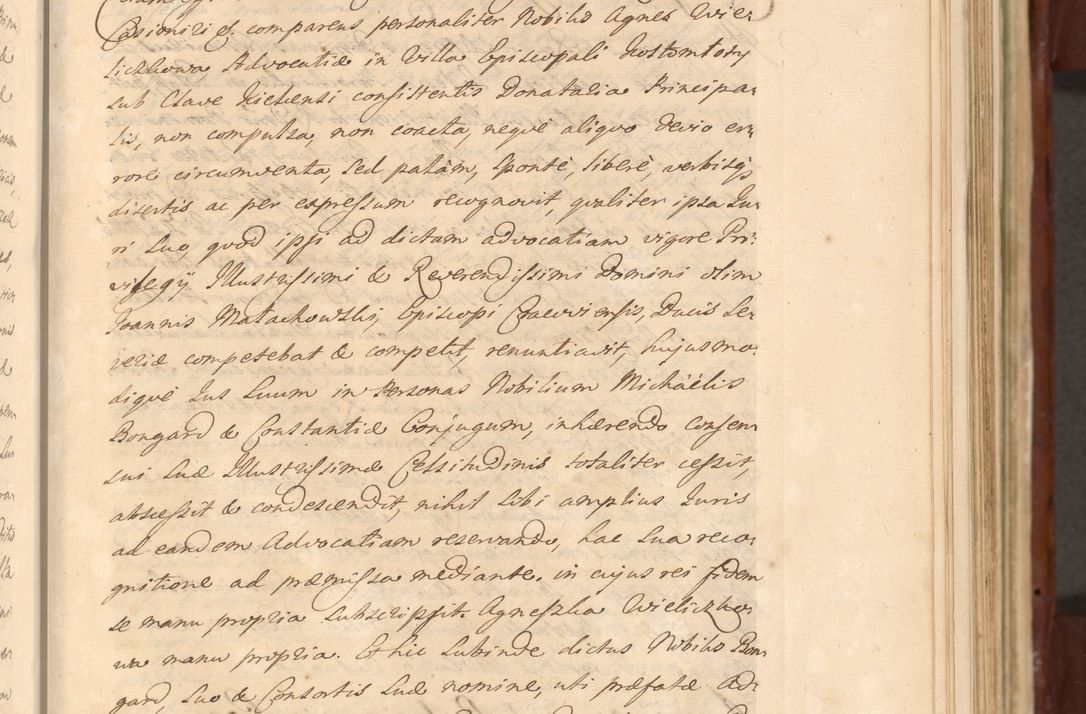 Casimiri &. comparens personaliter Nobilis Agnes Wie-
liczkowa, Advocatiæ in Villa Episcopali Kostomłoty
sub Clave Kielcensi consistentis Donataria Principa-
lis, non compulsa, non coacta, neque aliquo devio er-
rore circumventa, sed palàm, sponte, liberè, verbisq
disertis ac per expressum recognovit, qvaliter ipsa Ju-
ri suo, quod ipsi ad dictam advocatiam vigore Pri-
vilegij Illustrissimi & Reverendissimi Domini olim
Joannis Małachowski, Episcopi Cracoviensis, Ducis Se-
veriæ competebat & competit, renuntiavit, hujusmo-
diqve Jus Suum in Personas Nobilium Michäelis
Bongard & Constantiæ Conjugum, inhærendo Consen-
sui Suæ Illustrissimæ Celsitudinis totaliter cessit,
abscessit & condescendit, nihil sibi amplius Juris
ad eandem Advocatiam reservando, hac Sua reco-
gnitione ad præmissa mediante. in cujus rei fidem
se manu propria subscripsit. Agneszka Wieliczko-
wa manu propria. Et hic subinde dictus Nobilis Bon-
gard, suo & Consortis Suæ nomine, uti præfatæ Ad-